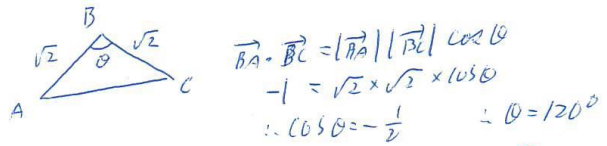 B
√2 √2
θ
A C
B⃗A⃗ · B⃗C⃗ = |B⃗A⃗| |B⃗C⃗| cosθ
-1 = √2 × √2 × cosθ
∴ cosθ = -1/2 ∴ θ = 120°